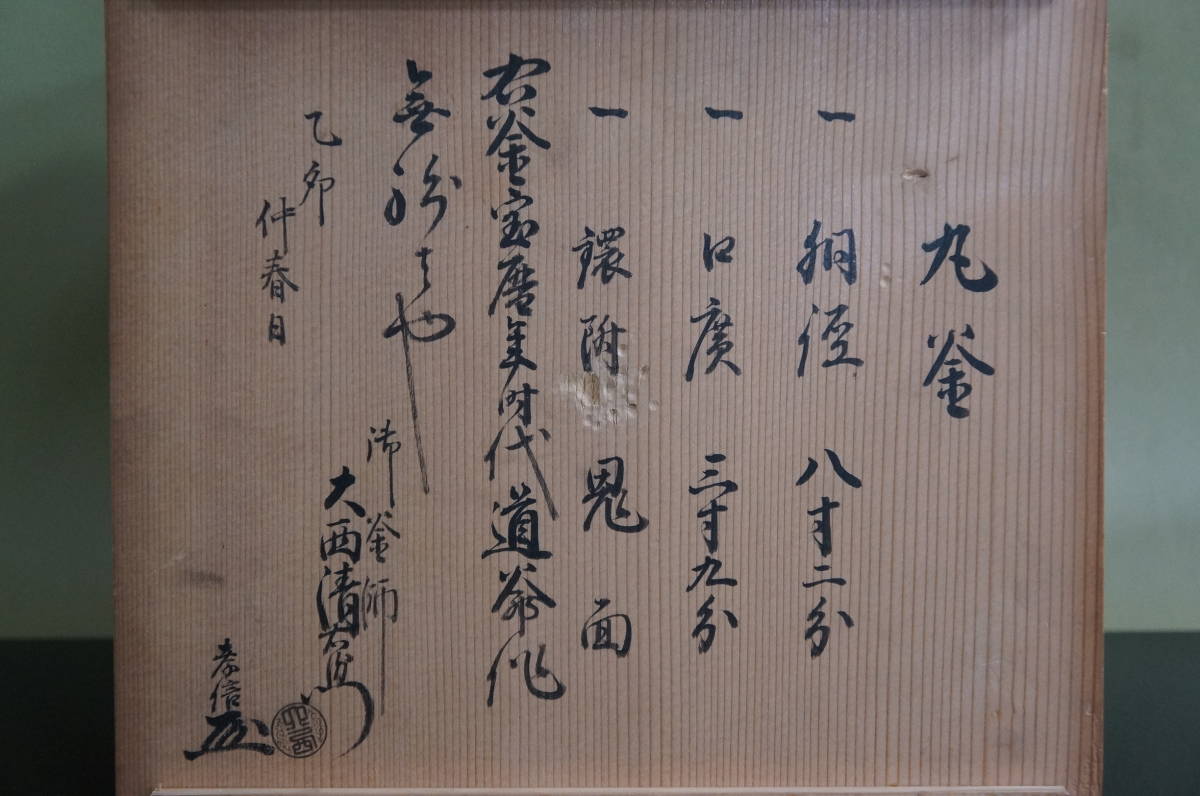 丸釜
一 胴径 八寸二分
一 口廣 三寸九分
一 鐶附 鬼面
右釜宝暦年時代道翁作
無紛者也
乙卯
仲春日
御釜師
大西清右衛門
孝信